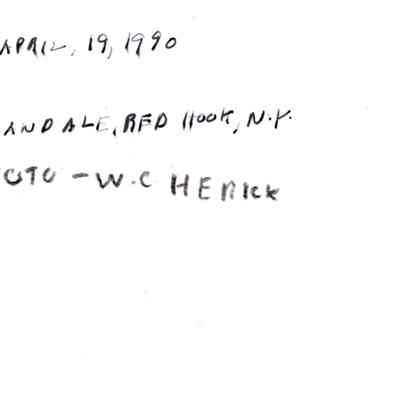 APRIL, 19, 1990
ANDALE, RED HOOK, N.Y.
OTO - W.C HERICK